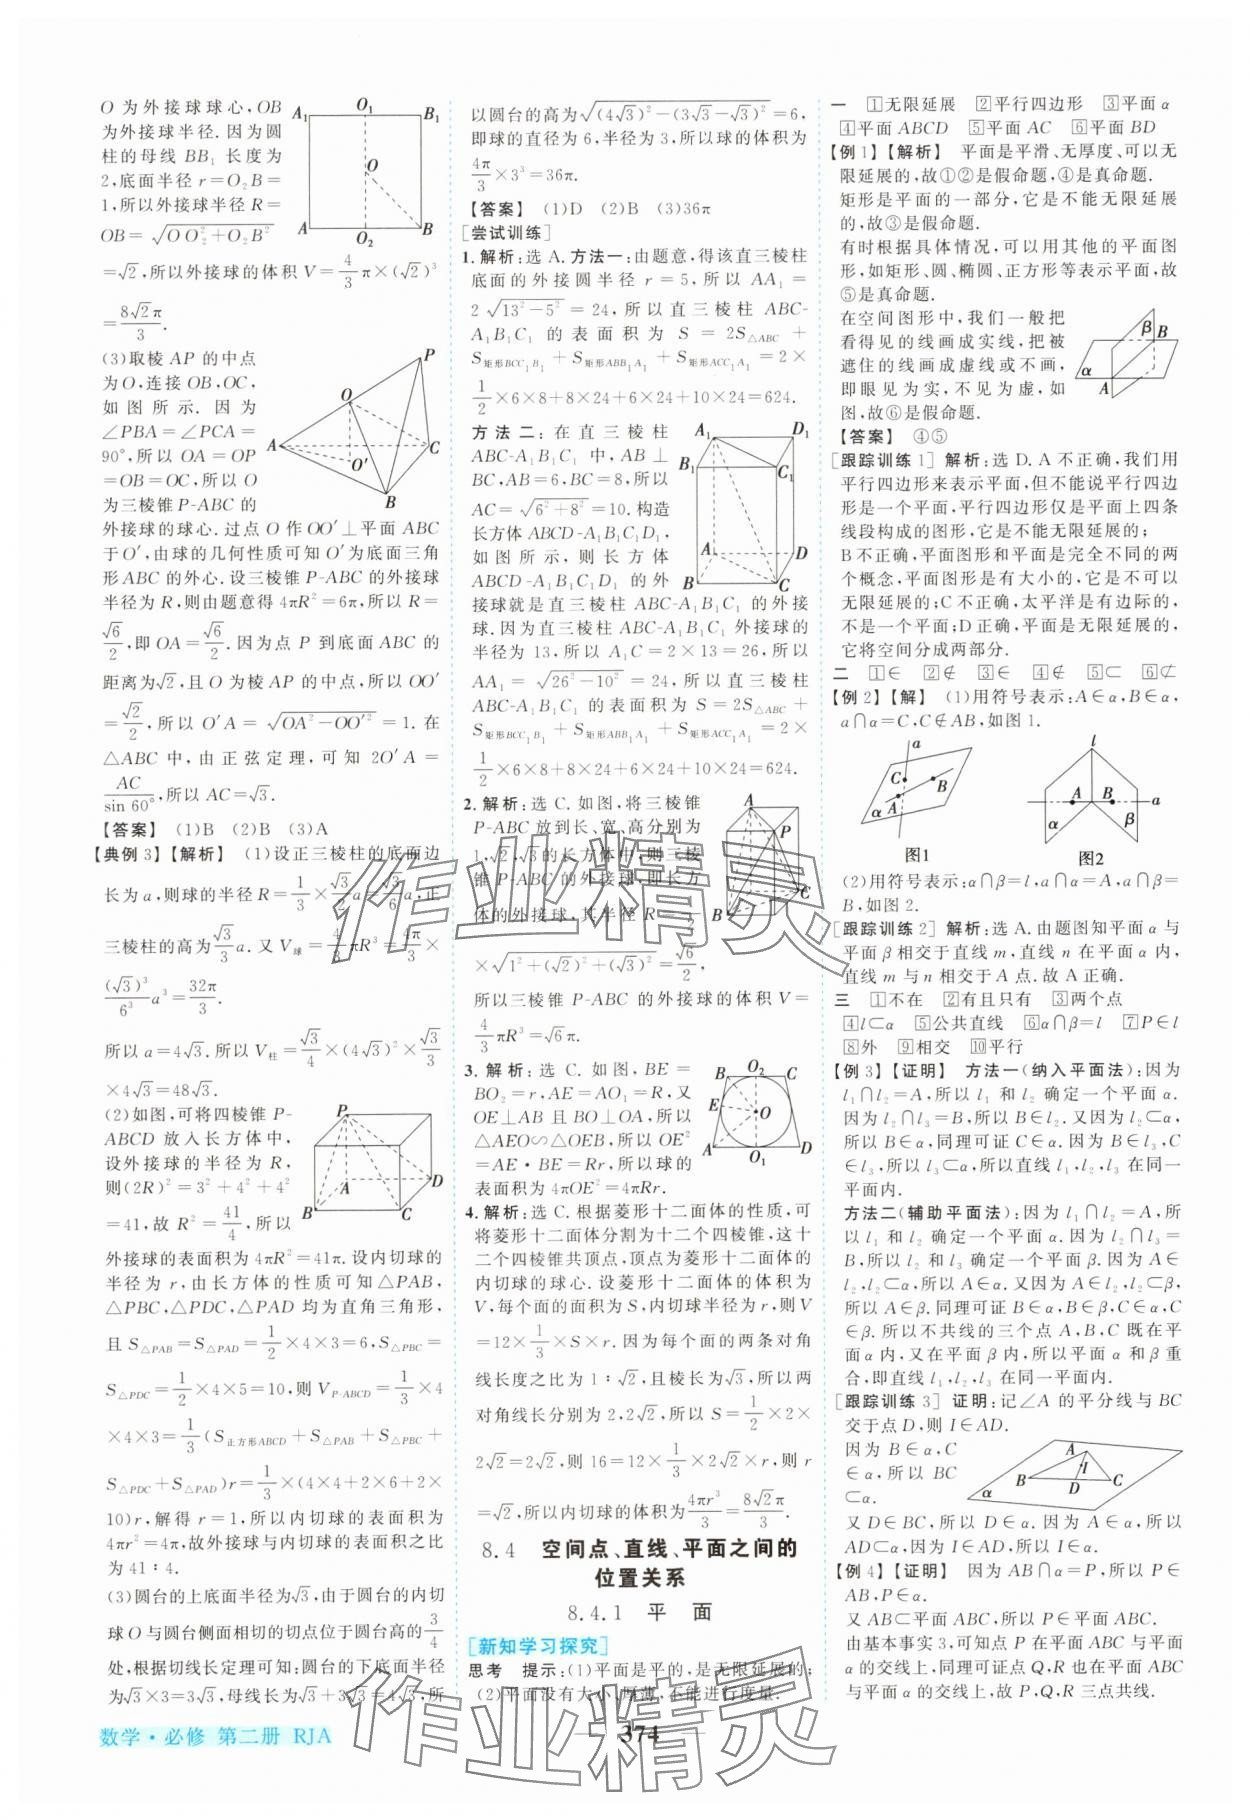 O 为外接球球心,OB
为外接球半径.因为圆
柱的母线 BB₁ 长度为
2,底面半径 r=O₂B=
1,所以外接球半径 R=
OB=√(OO₂²+O₂B²)
=√2,所以外接球的体积 V=4/3 π×(√2)³
=8√2π/3.
(3)取棱 AP 的中点
为 O,连接 OB,OC,
如图所示.因为
∠PBA=∠PCA=
90°,所以 OA=OP
=OB=OC,所以 O
为三棱锥 P-ABC 的
外接球的球心.过点 O 作 OO′⊥平面 ABC
于 O′,由球的几何性质可知 O′为底面三角
形 ABC 的外心.设三棱锥 P-ABC 的外接球
半径为 R,则由题意得 4πR²=6π,所以 R=
√6/2,即 OA=√6/2.因为点 P 到底面 ABC 的
距离为√2,且 O 为棱 AP 的中点,所以 OO′
=√2/2,所以 O′A=√(OA²-OO′²)=1.在
△ABC 中,由正弦定理,可知 2O′A=
AC/sin 60°,所以 AC=√3.
【答案】 (1)B (2)B (3)A
【典例 3】【解析】 (1)设正三棱柱的底面边
长为 a,则球的半径 R=1/3×√3/2 a=√3/6 a,正
三棱柱的高为√3/3 a.又 V球=4/3 πR³=4π/3×
(√3)³/6³ a³=32π/3.
所以 a=4√3.所以 V柱=√3/4×(4√3)²×√3/3
×4√3=48√3.
(2)如图,可将四棱锥 P-
ABCD 放入长方体中,
设外接球的半径为 R,
则(2R)²=3²+4²+4²
=41,故 R²=41/4,所以
外接球的表面积为 4πR²=41π.设内切球的
半径为 r,由长方体的性质可知△PAB,
△PBC,△PDC,△PAD 均为直角三角形,
且 S△PAB=S△PAD=1/2×4×3=6,S△PBC=
S△PDC=1/2×4×5=10,则 V P-ABCD=1/3×4
×4×3=1/3(S正方形ABCD+S△PAB+S△PBC+
S△PDC+S△PAD)r=1/3×(4×4+2×6+2×
10)r,解得 r=1,所以内切球的表面积为
4πr²=4π,故外接球与内切球的表面积之比
为 41∶4.
(3)圆台的上底面半径为√3,由于圆台的内切
球 O 与圆台侧面相切的切点位于圆台高的3/4
处,根据切线长定理可知:圆台的下底面半径
为√3×3=3√3,母线长为√3+3√3=4√3,所
以圆台的高为√((4√3)²-(3√3-√3)²)=6,
即球的直径为 6,半径为 3,所以球的体积为
4π/3×3³=36π.
【答案】 (1)D (2)B (3)36π
[尝试训练]
1.解析:选 A.方法一:由题意,得该直三棱柱
底面的外接圆半径 r=5,所以 AA₁=
2√(13²-5²)=24,所以直三棱柱 ABC-
A₁B₁C₁ 的表面积为 S=2S△ABC+
S矩形BCC₁B₁+S矩形ABB₁A₁+S矩形ACC₁A₁=2×
1/2×6×8+8×24+6×24+10×24=624.
方法二:在直三棱柱
ABC-A₁B₁C₁ 中,AB⊥
BC,AB=6,BC=8,所以
AC=√(6²+8²)=10.构造
长方体 ABCD-A₁B₁C₁D₁,
如图所示,则长方体
ABCD-A₁B₁C₁D₁ 的外
接球就是直三棱柱 ABC-A₁B₁C₁ 的外接
球.因为直三棱柱 ABC-A₁B₁C₁ 外接球的
半径为 13,所以 A₁C=2×13=26,所以
AA₁=√(26²-10²)=24,所以直三棱柱
ABC-A₁B₁C₁ 的表面积为 S=2S△ABC+
S矩形BCC₁B₁+S矩形ABB₁A₁+S矩形ACC₁A₁=2×
1/2×6×8+8×24+6×24+10×24=624.
2.解析:选 C.如图,将三棱锥
P-ABC 放到长、宽、高分别为
1,√2,√3的长方体中,则三棱
锥 P-ABC 的外接球,即长方
体的外接球,其半径 R=1/2
×√(1²+(√2)²+(√3)²)=√6/2,
所以三棱锥 P-ABC 的外接球的体积 V=
4/3 πR³=√6π.
3.解析:选 C.如图,BE=
BO₂=r,AE=AO₁=R,又
OE⊥AB 且 BO⊥OA,所以
△AEO∽△OEB,所以 OE²
=AE·BE=Rr,所以球的
表面积为 4πOE²=4πRr.
4.解析:选 C.根据菱形十二面体的性质,可
将菱形十二面体分割为十二个四棱锥,这十
二个四棱锥共顶点,顶点为菱形十二面体的
内切球的球心.设菱形十二面体的体积为
V,每个面的面积为 S,内切球半径为 r,则 V
=12×1/3×S×r.因为每个面的两条对角
线长度之比为 1∶√2,且最长为2√2,所以两
对角线长分别为 2,2√2,所以 S=1/2×2×
2√2=2√2,则 16=12×1/3×2√2×r,则 r
=√2,所以内切球的体积为4πr³/3=8√2π/3.
8.4 空间点、直线、平面之间的
位置关系
8.4.1 平 面
[新知学习探究]
思考 提示:(1)平面是平的,是无限延展的;
(2)平面没有大小、厚薄,不能进行度量.
一 1无限延展 2平行四边形 3平面 α
4平面 ABCD 5平面 AC 6平面 BD
【例 1】【解析】 平面是平滑、无厚度、可以无
限延展的,故①②是假命题,④是真命题.
矩形是平面的一部分,它是不能无限延展
的,故③是假命题.
有时根据具体情况,可以用其他的平面图
形,如矩形、圆、椭圆、正方形等表示平面,故
⑤是真命题.
在空间图形中,我们一般把
看得见的线画成实线,把被
遮住的线画成虚线或不画,
即眼见为实,不见为虚,如
图,故⑥是假命题.
【答案】 ④⑤
[跟踪训练 1] 解析:选 D.A 不正确,我们用
平行四边形来表示平面,但不能说平行四边
形是一个平面,平行四边形仅是平面上四条
线段构成的图形,它是不能无限延展的;
B 不正确,平面图形和平面是完全不同的两
个概念,平面图形是有大小的,它是不可以
无限延展的;C 不正确,太平洋是有边际的,
不是一个平面;D 正确,平面是无限延展,
它将空间分成两部分.
二 1∈ 2∉ 3∈ 4∉ 5⊂ 6⊄
【例 2】【解】 (1)用符号表示:A∈α,B∈α,
a∩α=C,C∉AB,如图 1.
图1 图2
(2)用符号表示:α∩β=l,a∩α=A,a∩β=
B,如图 2.
[跟踪训练 2] 解析:选 A.由题图知平面 α 与
平面 β 相交于直线 m,直线 n 在平面 α 内,
直线 m 与 n 相交于 A 点.故 A 正确.
三 1不在 2有且只有 3两个点
4l⊂α 5公共直线 6α∩β=l 7P∈l
8外 9相交 10平行
【例 3】【证明】 方法一(纳入平面法):因为
l₁∩l₂=A,所以 l₁ 和 l₂ 确定一个平面 α.
因为 l₂∩l₃=B,所以 B∈l₂.又因为 l₂⊂α,
所以 B∈α,同理可证 C∈α.因为 B∈l₃,C
∈l₃,所以 l₃⊂α,所以直线 l₁,l₂,l₃ 在同一
平面内.
方法二(辅助平面法):因为 l₁∩l₂=A,所
以 l₁ 和 l₂ 确定一个平面 α.因为 l₂∩l₃=
B,所以 l₂ 和 l₃ 确定一个平面 β.因为 A∈
l₂,l₂⊂α,所以 A∈α.又因为 A∈l₂,l₂⊂β,
所以 A∈β.同理可证 B∈α,B∈β,C∈α,C
∈β.所以不共线的三个点 A,B,C 既在平
面 α 内,又在平面 β 内,所以平面 α 和 β 重
合,即直线 l₁,l₂,l₃ 在同一平面内.
[跟踪训练 3] 证明:记∠A 的平分线与 BC
交于点 D,则 I∈AD.
因为 B∈α,C∈
α,所以 BC
⊂α.
又 D∈BC,所以 D∈α.又 A∈α,所以 AD
⊂α,所以 I∈α.
【例 4】【证明】 因为 AB∩α=P,所以 P∈
AB,P∈α.
又 AB⊂平面 ABC,所以 P∈平面 ABC.
由基本事实 3,可知点 P 在平面 ABC 与平面
α 的交线上,同理可证点 Q,R 也在平面 ABC
与平面 α 的交线上,故 P,Q,R 三点共线.
数学·必修 第二册 RJA
374
作业精灵
作业精灵